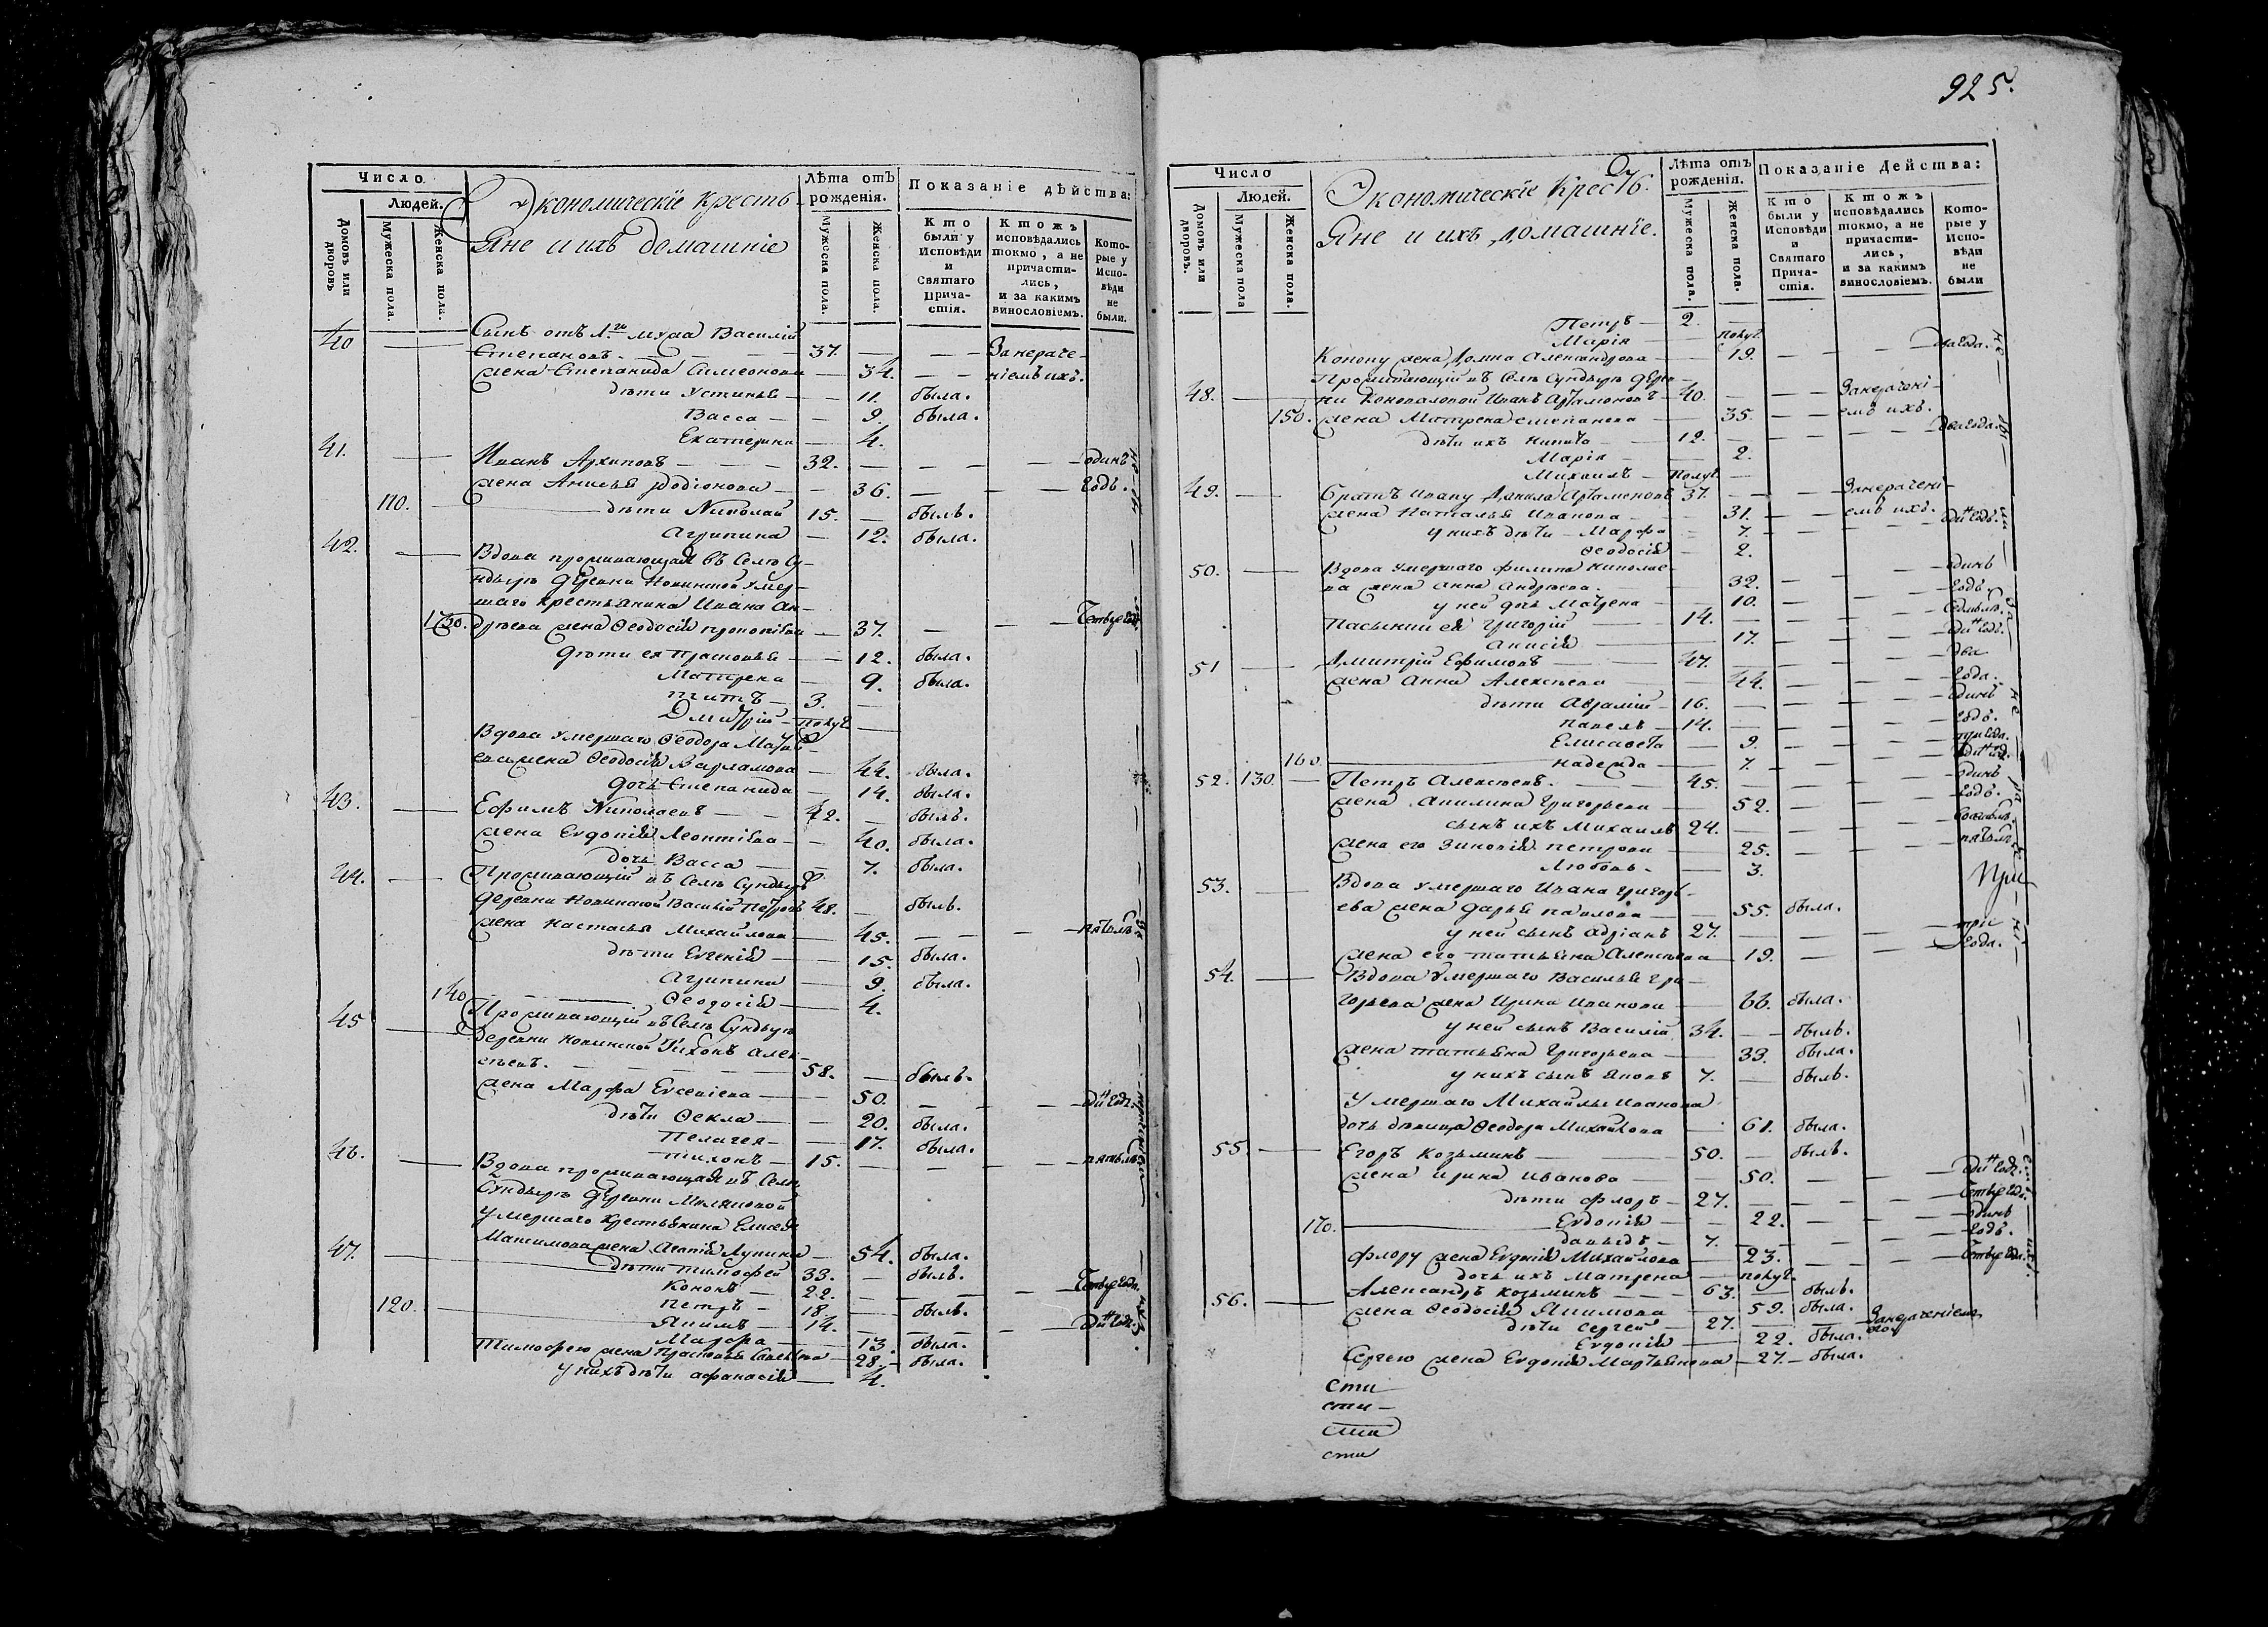 925.
Число
Людей.
Домовъ или дворовъ
Мужеска пола.
Женска пола.
Экономическіе кресть-
яне и ихъ домашніе
Лѣта отъ рожденія.
Мужеска пола.
Женска пола.
Показаніе дѣйства:
Кто были у Исповѣди и Святаго Прича-стія.
Ктожъ исповѣдались токмо, а не причасти-лись, и за какимъ винословіемъ.
Кото-рые у Испо-вѣди не были.
40 Сынъ отъ 1й Василій
Степановъ 37. Занераче-
жена Степанида Симеонова 34. ніемъ ихъ.
дѣти Устинья 11. была.
Васса 9. была.
Екатерина 4.
41. Иванъ Архиповъ 32. одинъ
жена Анисья Родіонова 36. годъ.
110. дѣти Николай 15. былъ.
Агрипина 12. была.
42. Вдова проживающая въ Селѣ Су-
ндырь деревни умер-
шаго крестьянина Ивана Ан-
130. дреева жена Ѳеодосія 37.
дѣти ея Прасковья 12. была.
Матрена 9. была.
Титъ 3.
Дмитрій полуг
Вдова умершаго Ѳеодора
жена Ѳеодосія Варламова 44. была.
дочь Степанида 14. была.
43. Ефимъ Николаевъ 42. былъ.
жена Евдокія Леонтіева 40. была.
дочь Васса 7. была.
44. Проживающій въ Селѣ Сундырь
деревни Василій Петровъ 48. былъ.
жена Настасья Михайлова 45. пятьлѣ
дѣти Евгенія 15. была.
Агрипина 9. была.
140 Ѳеодосія 4.
45 Проживающій въ Селѣ Сундырь
деревни Тихонъ Алек-
сѣевъ. 58. былъ.
жена Марѳа Евсевіева 50. одинъ годъ.
дѣти Ѳекла 20. была.
Пелагея 17. была.
Тихонъ 15. пятьлѣ
46. Вдова проживающая въ Селѣ
Сундырь деревни
умершаго крестьянина Елисея
47. Максимова жена Агапія Лукина 54. была.
дѣти Тимофей 33. былъ.
Кононъ 22. Четыре года.
120. Петръ 18. былъ.
Якимъ 14. одинъ годъ.
Марѳа 13. была.
Тимофею жена Прасковья 28. была.
у нихъ дѣти Афанасія 4.
Число
Людей.
Домовъ или дворовъ.
Мужеска пола
Женска пола.
Экономическіе Крестъ-
яне и ихъ домашніе.
Лѣта отъ рожденія.
Мужеска пола.
Женска пола.
Показаніе Действа:
Кто были у Исповѣди и Святаго Прича-стія.
Ктожъ исповѣдались токмо, а не причасти-лись, и за какимъ винословіемъ.
Кото-рые у Испо-вѣди не были
Петръ 2.
Марія полуг.
Конону жена Домна Александрова 19. два года.
Проживающій въ Селѣ Сундырь дерев-
48. ни Коноваловой Иванъ Артамоновъ 40. Занерачені-
150. жена Матрена Степанова 35. емъ ихъ.
дѣти ихъ Никита 12. два года.
Марія 2.
Михаилъ полуг.
49. Братъ Ивану Данила Артамоновъ 37. Занерачені-
жена Наталья Иванова 31. емъ ихъ.
у нихъ дѣти Марѳа 7. одинъ годъ.
Ѳеодосія 2.
50. Вдова умершаго Филипа Николае-
ва жена Анна Андреева 32. одинъ годъ.
у ней дочь Матрена 10.
Пасынки ея Григорій 14.
Анисія 17.
51 Дмитрій Ефимовъ 47. два
жена Анна Алексѣева 44. года.
дѣти Аврамій 16. одинъ
Павелъ 14. годъ.
Елисавета 9. три года.
160. Надежда 7.
52. 130. Петръ Алексѣевъ. 45. одинъ
жена Акилина Григорьева 52. годъ.
сынъ ихъ Михаилъ 24.
жена его Зиновія Петрова 25. пятьлѣ
Любовь. 3.
53. Вдова умершаго Ивана Григорь-
ева жена Дарья Павлова 55. была.
у ней сынъ Адріанъ 27. три
жена его Татьяна Алексѣева 19. года.
54. Вдова умершаго Василья Гри-
горьева жена Ирина Иванова 66. была.
у ней сынъ Василій 34. былъ.
жена Татьяна Григорьева 33. была.
у нихъ сынъ Яковъ 7. былъ.
умершаго Михайлы Иванова
дочь дѣвица Ѳеодора Михайлова 61. была.
55. Егоръ Козьминъ 50. былъ.
жена Ирина Иванова 50. одинъ годъ.
дѣти Флоръ 27. Четыре года.
170. Евдокія 22. одинъ
Давыдъ 7. годъ.
Флору жена Евдокія Михайлова 23. Четыре года.
дочь ихъ Матрена полуг.
56. Александръ Козьминъ 63. былъ.
жена Ѳеодосія Якимова 59. была.
дѣти Сергей 27. Занераченіемъ
Евдокія 22. была. его
Сергею жена Евдокія Мартьянова 27. была.
сти
сти
сти
сти